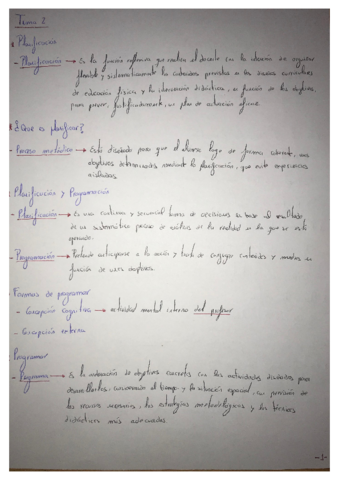 Tema 2
Planificación
- Planificación → Es la función reflexiva que realiza el docente con la intención de organizar
flexible y sistemáticamente los contenidos previstos en los diseños curriculares
de educación física y la intervención didáctica, en función de los objetivos,
para prever, justificadamente, un plan de actuación
¿Qué es planificar?
- Proceso → Está diseñado para que el alumno logre de forma coherente, unos
objetivos determinados mediante la planificación, que evite experiencias
aisladas.
Planificación y Programación
- Planificación → Es una y secuencial toma de decisiones en base al resultado,
de un sistemático proceso de análisis de la realidad en la que se está
operando.
- Programación → Pretende anticiparse a la acción y trata de conjugar contenidos y medios en
función de unos objetivos.
Formas de programar
- Concepción cognitiva → actividad mental interna del profesor
- Concepción externa
Programar
- Programar → Es la ordenación de objetivos concretos con las actividades diseñadas para
desarrollarlos, el tiempo y la situación espacial, con previsión de
los recursos necesarios, las estrategias metodológicas y las técnicas
didácticas más adecuadas.
-1-